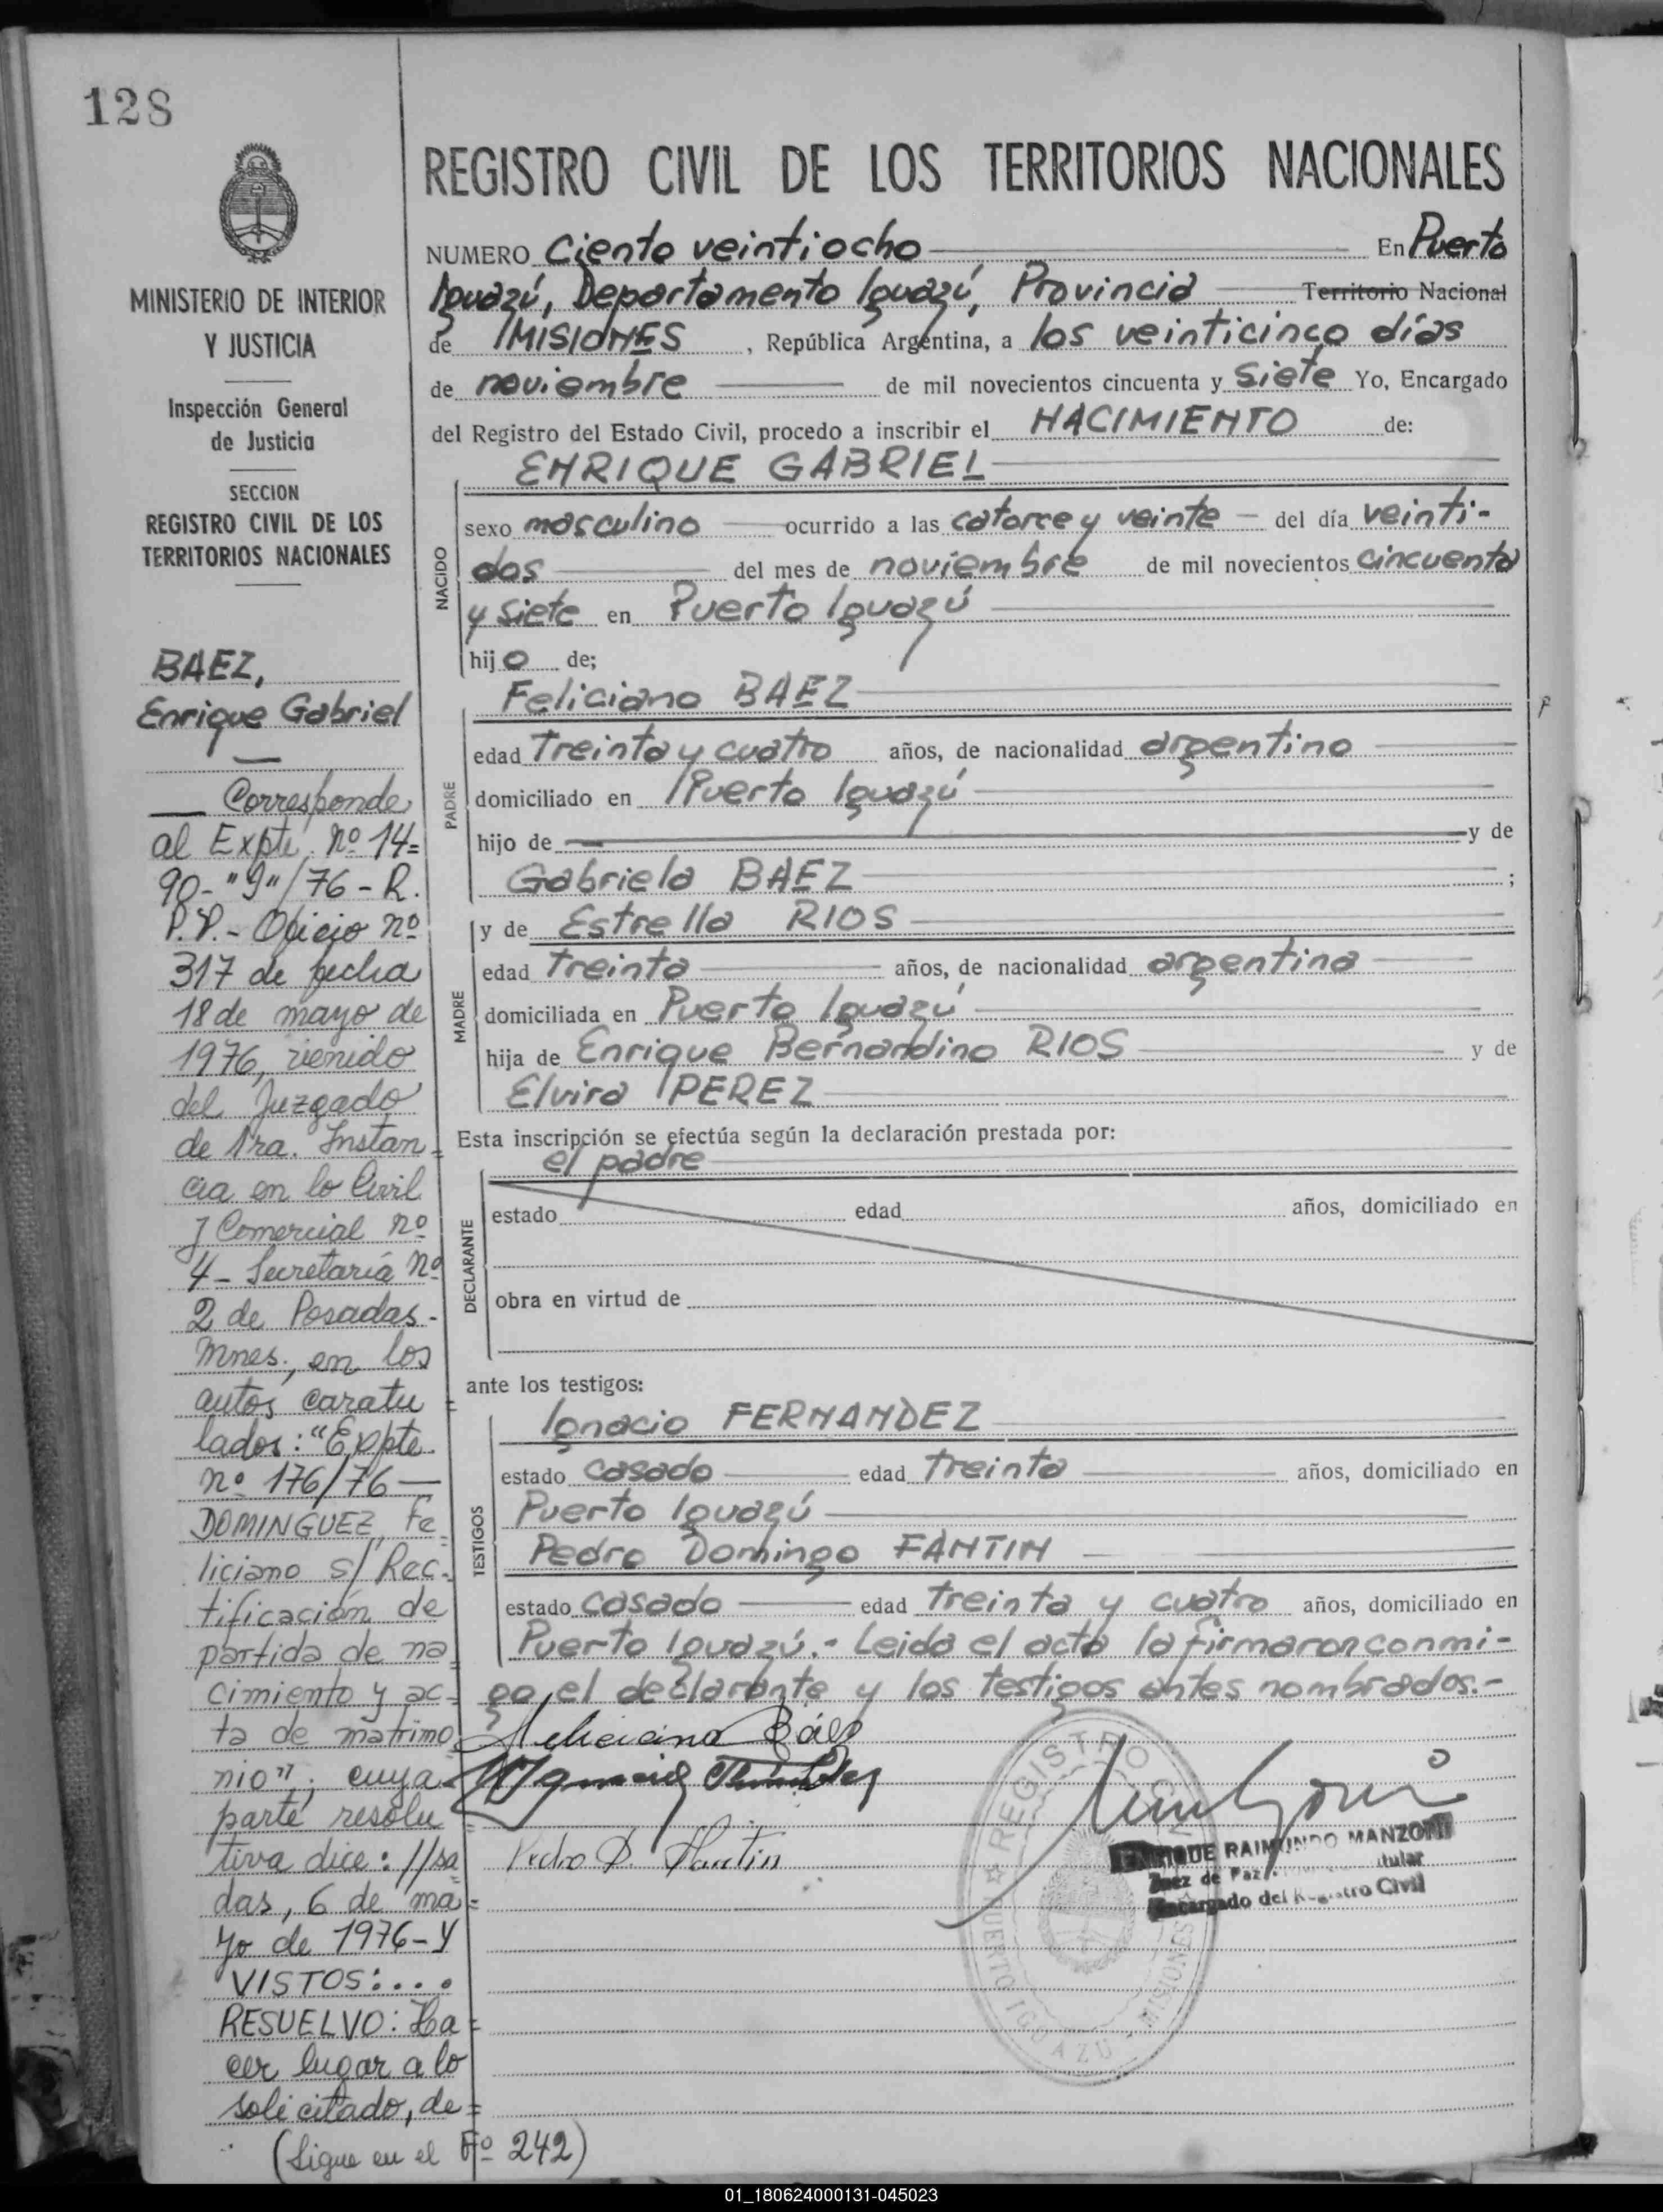 128
MINISTERIO DE INTERIOR
Y JUSTICIA
Inspección General
de Justicia
SECCION
REGISTRO CIVIL DE LOS
TERRITORIOS NACIONALES
BAEZ,
Enrique Gabriel
Corresponde
al Expte. nº 14=
90-"9"/76-R.
P.P.- Oficio nº
317 de fecha
18 de mayo de
1976, venido
del Juzgado
de 1ra. Instan=
cia en lo Civil
y Comercial nº
4- Secretaría nº
2 de Posadas-
Mnes., en los
autos caratu=
lados: "Expte.
nº 176/76-
DOMINGUEZ, Fe-
liciano s/ Rec-
tificación de
partida de na-
cimiento y ac-
ta de matrimo
nio"; cuya
parte resolu=
tiva dice: //sa=
das, 6 de ma=
yo de 1976-Y
VISTOS:....
RESUELVO: Ha=
cer lugar a lo
solicitado, de=
(Sigue en el Fº 242)
REGISTRO CIVIL DE LOS TERRITORIOS NACIONALES
NUMERO Ciento veintiocho En Puerto
Iguazú, Departamento Iguazú, Provincia Territorio Nacional
de MISIONES, República Argentina, a los veinticinco días
de noviembre de mil novecientos cincuenta y siete Yo, Encargado
del Registro del Estado Civil, procedo a inscribir el NACIMIENTO de:
ENRIQUE GABRIEL
NACIDO
sexo masculino ocurrido a las catorce y veinte - del día veinti-
dos del mes de noviembre de mil novecientos cincuenta
y siete en Puerto Iguazú
hijo de;
Feliciano BAEZ
PADRE
edad Treinta y cuatro años, de nacionalidad argentino
domiciliado en Puerto Iguazú
hijo de y de
Gabriela BAEZ ;
y de Estrella RIOS
MADRE
edad Treinta años, de nacionalidad argentina
domiciliada en Puerto Iguazú
hija de Enrique Bernardino RIOS y de
Elvira PEREZ
Esta inscripción se efectúa según la declaración prestada por:
el padre
DECLARANTE
estado edad años, domiciliado en
obra en virtud de
ante los testigos:
TESTIGOS
Ignacio FERNANDEZ
estado casado edad Treinta años, domiciliado en
Puerto Iguazú
Pedro Domingo FANTIN
estado casado edad Treinta y cuatro años, domiciliado en
Puerto Iguazú.- Leida el acta la firmaron conmi-
go, el declarante y los testigos antes nombrados.-
Feliciano Báez
Pedro D. Fantin
REGISTRO CIVIL
PUERTO IGUAZU - MISIONES
ENRIQUE RAIMUNDO MANZONI
Juez de Paz Titular
Encargado del Registro Civil
01_180624000131-045023